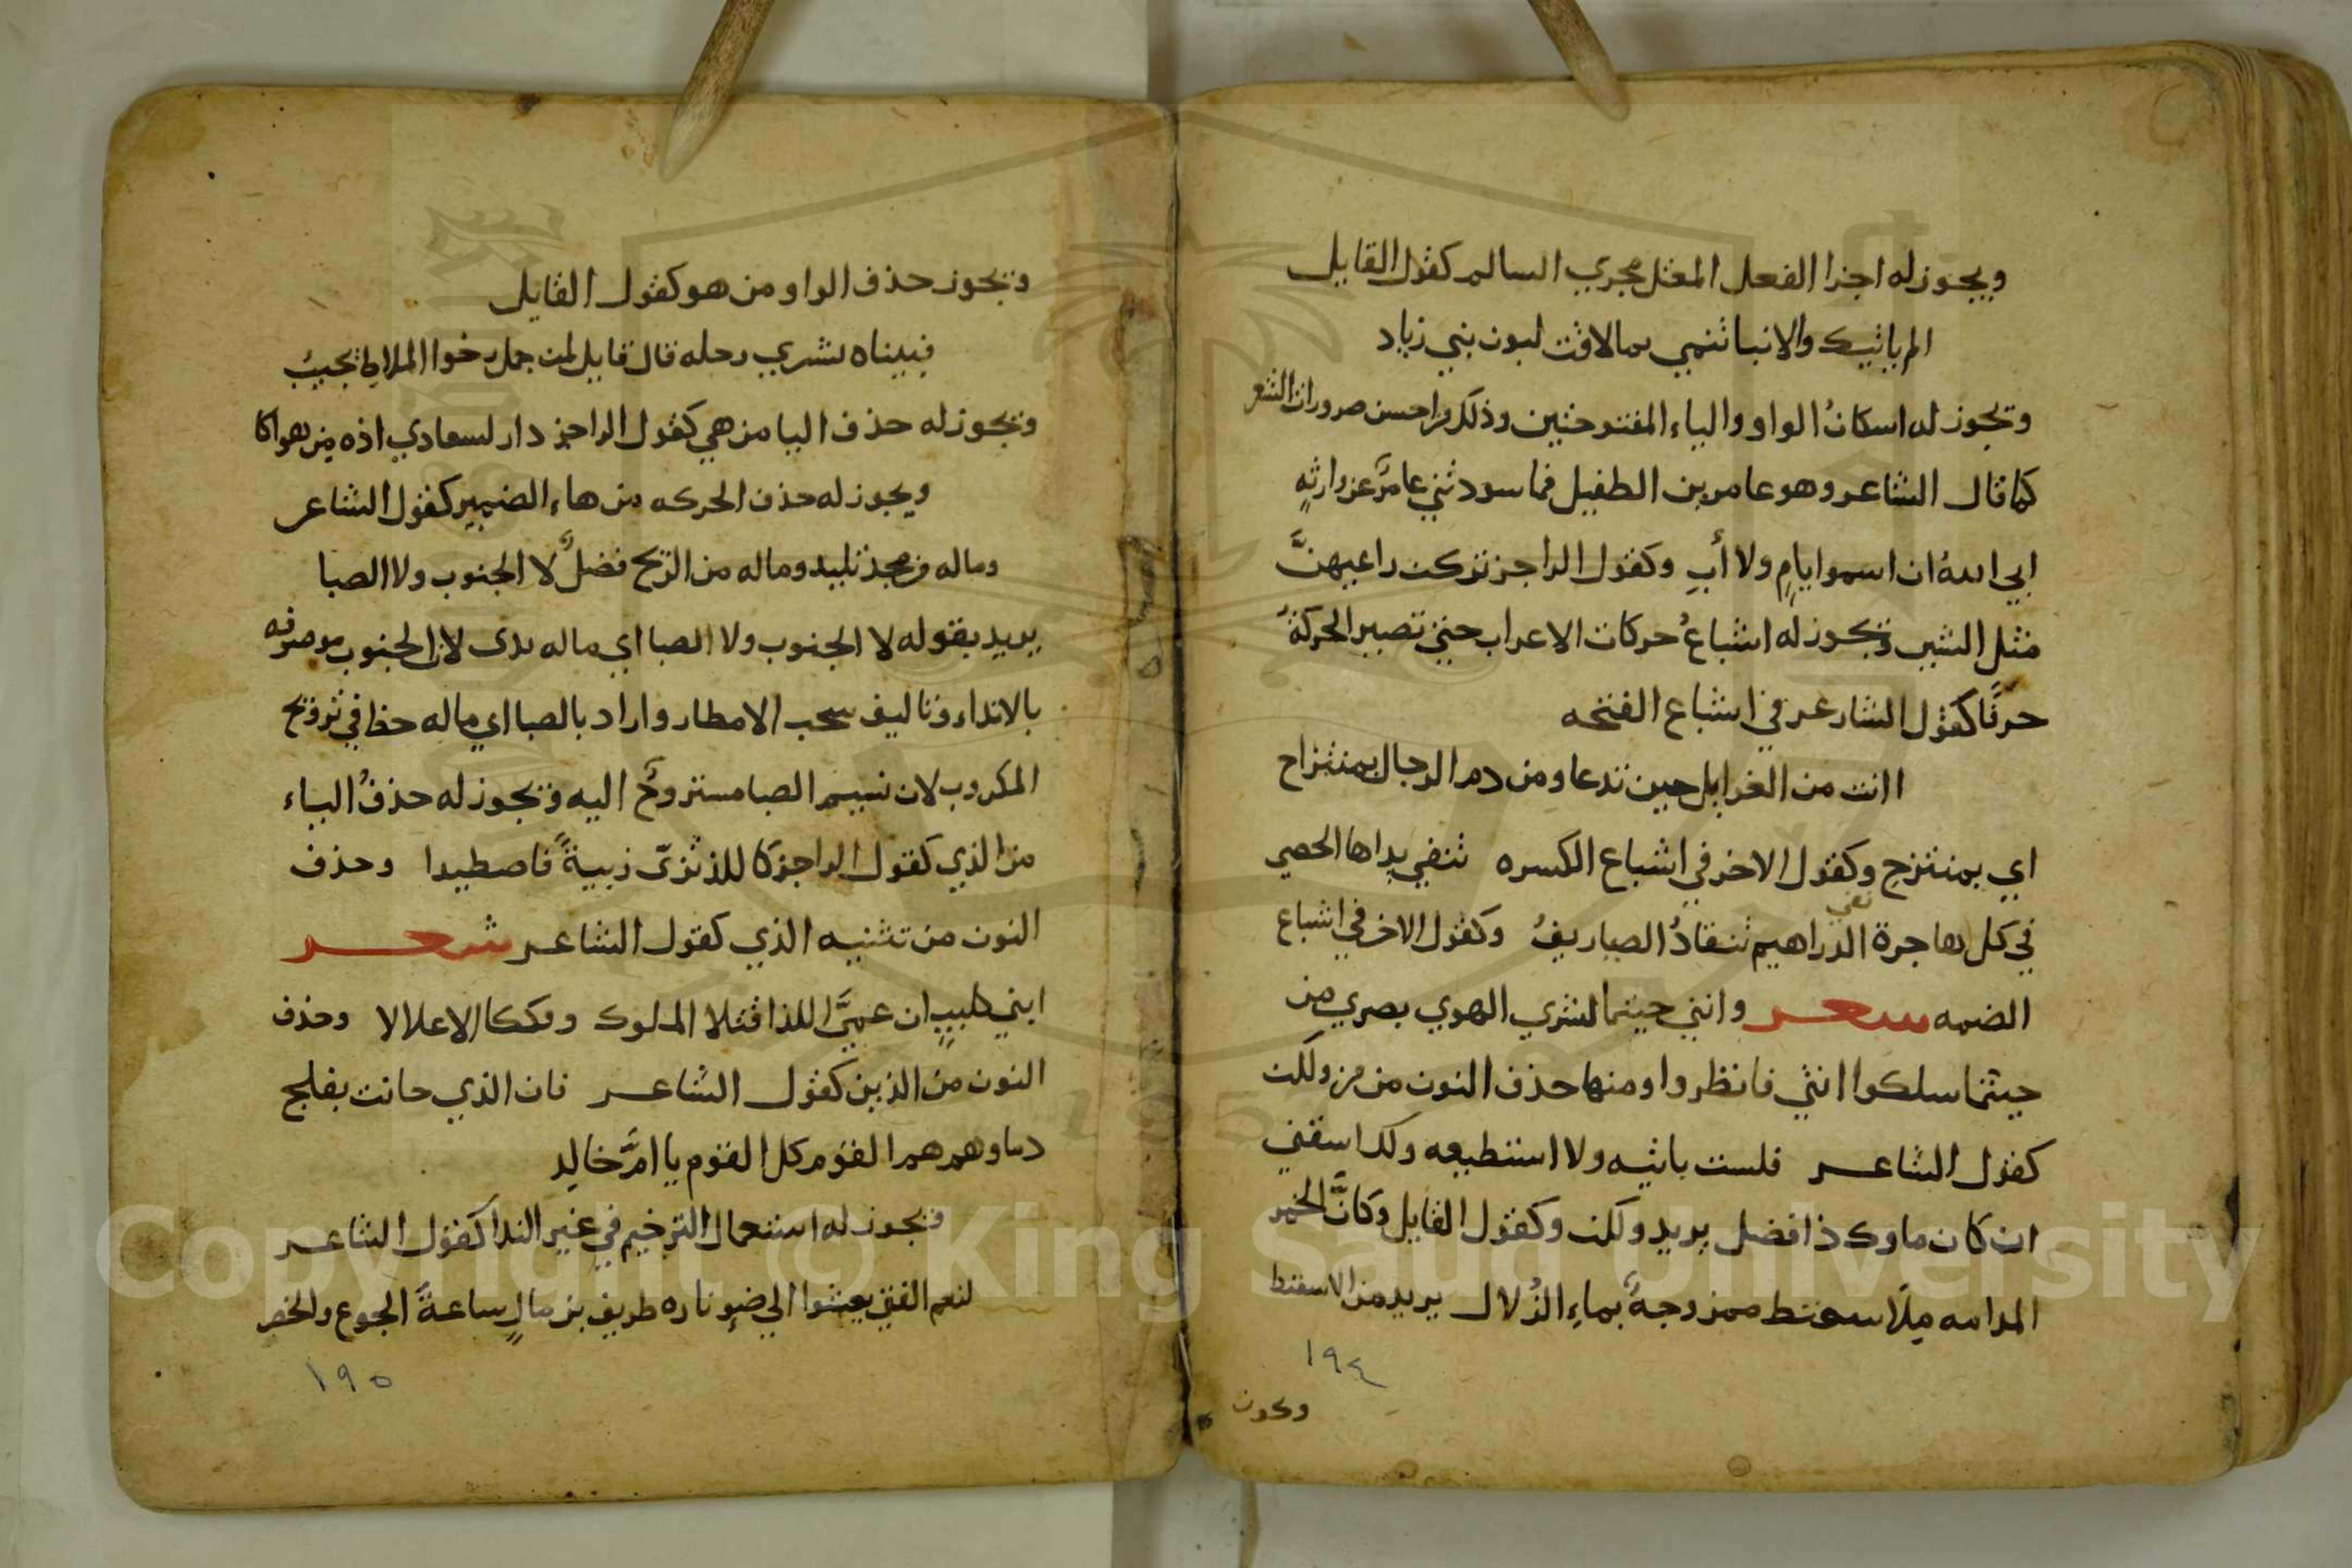 ويجوز له اجرا الفعل المعتل مجري السالم كقول القايل
الم ياتيك والانبا تنمي بما لاقت لبون بني زياد
وتجوز له اسكانُ الواو والياء المفتوحتين وذلك من احسن ضرورات الشعر
كما قال الشاعر وهو عامر بن الطفيل فما سودتني عامرٌ عن وارثهِ
ابي اللهُ ان اسموا بامٍ ولا أبِ وكقول الراجز تركت راعيهنَّ
مثل الشن وتجوز له اشباعُ حركات الاعراب حتي تصير الحركةُ
حرفًا كقول الشاعر في اشباع الفتحه
اانت من الغوايل حين تدعا ومن دم الرجال بمنتزاح
اي بمنتزح وكقول الاخر في اشباع الكسره تنفي يداها الحصي
في كل هاجرة نفي الدراهيم تنقادُ الصياريفُ وكقول الاخر في اشباع
الضمه شعر وانني حيثما يشري الهوي بصري من
حيثما سلكوا انثني فانظروا ومنها حذف النون من من ولكن
كقول الشاعر فلست باتيه ولا استطيعه ولك اسقني
ان كان ماوك ذا فضل يريد ولكن وكقول القايل وكانَّ الخمر
المدامه مِلَاسفنط ممزوجةٌ بماءِ الزُلال يريد من الاسفنط
١٩٤
وتجوز حذف الواو من هو كقول القايل
فبيناه يشري رحله قال قايل لمن جمل رخوا الملاط نجيبُ
وتجوز له حذف اليا من هي كقول الراجز دار لسعادي اذه من هواكا
ويجوز له حذف الحركه من هاء الضمير كقول الشاعر
وما له من مجد تليد وما له من الريح فضلٌ لا الجنوب ولا الصبا
يريد بقوله لا الجنوب ولا الصبا اي ما له ندى لان الجنوب موصوفه
بالانداء وتاليف سحب الامطار واراد بالصبا اي ماله حظا في ترويح
المكروب لان نسيم الصبا مستروحٌ اليه وتجوز له حذفُ الياء
من الذي كقول الراجز كاللذ تزبّى زبيةً فاصطيدا وحذف
النون من تثنيه الذي كقول الشاعر شعر
ابني كليبٍ ان عميَّ اللذا قتلا الملوك وفككا الاغلالا وحذف
النون من الذين كقول الشاعر فان الذي حانت بفلج
دماوهم هم القوم كل القوم يا امَّ خالِد
وتجوز له استعمال الترخيم في غير الندا كقول الشاعر
لنعم الفتى يعشوا الي ضوِ ناره طريف بن مالٍ ساعةَ الجوع والخصر
١٩٥